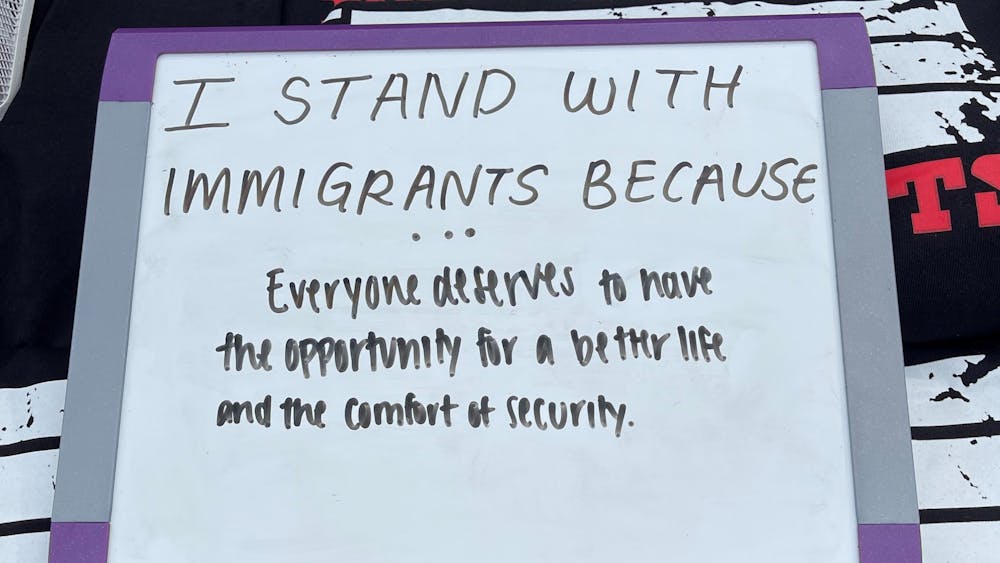 I STAND WITH
IMMIGRANTS BECAUSE
...
Everyone deserves to have
the opportunity for a better life
and the comfort of security.
TS